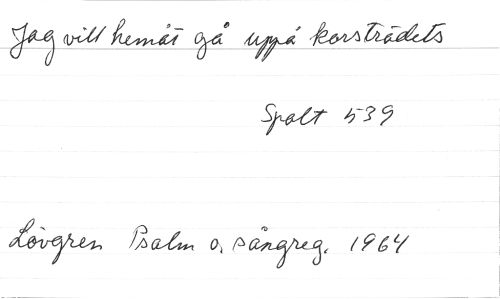 Jag vill hemåt gå uppå korsträdets
Spalt 539
Lövgren Psalm o. sångreg. 1964